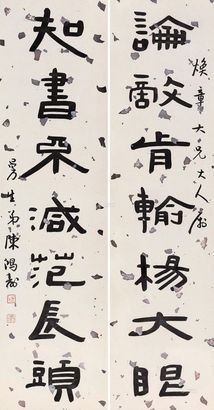 論敵肯輸楊大眼
煥章大兄大人屬
知書不減范長頭
曼生弟陳鴻壽